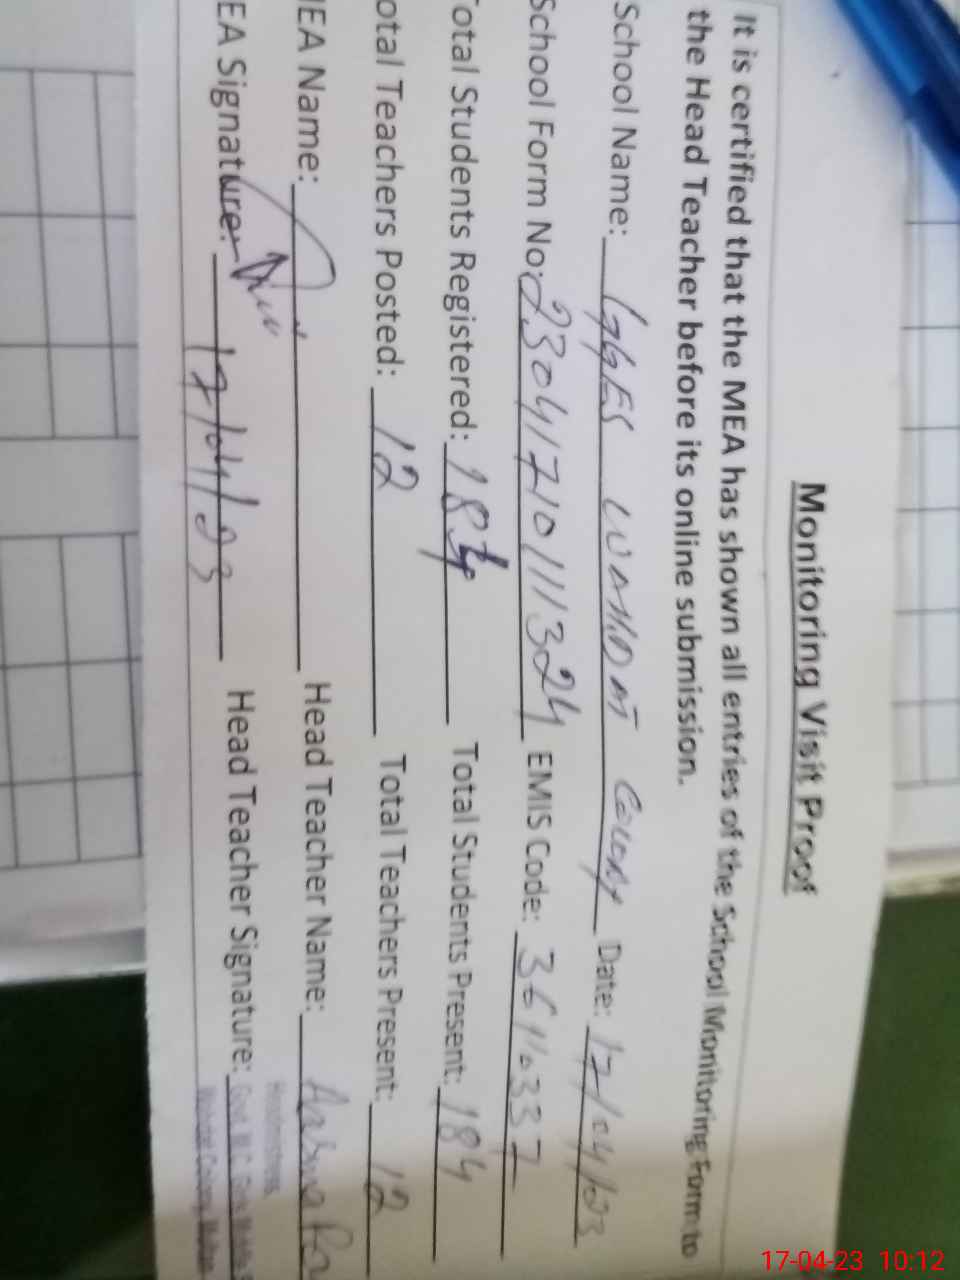 Monitoring Visit Proof
It is certified that the MEA has shown all entries of the School Monitoring Form to
the Head Teacher before its online submission.
School Name: GGES Colony Date: 17/04/23
School Form No: 23041710111324 EMIS Code:
Total Students Registered: 184 Total Students Present: 184
otal Teachers Posted: 12 Total Teachers Present: 12
EA Name: Head Teacher Name:
EA Signature: 17/04/23 Head Teacher Signature:
Headmistress,
Colony, Multan
17-04-23 10:12